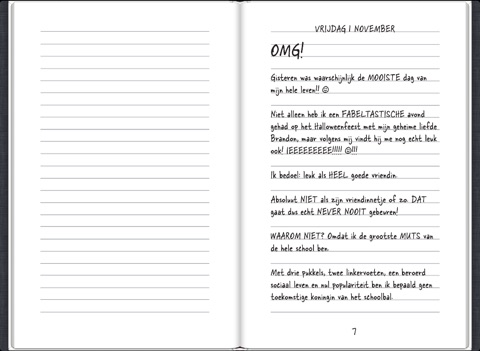 VRIJDAG 1 NOVEMBER
OMG!
Gisteren was waarschijnlijk de MOOISTE dag van
mijn hele leven!! ☺
Niet alleen heb ik een FABELTASTISCHE avond
gehad op het Halloweenfeest met mijn geheime liefde
Brandon, maar volgens mij vindt hij me nog echt leuk
ook! IEEEEEEEEE!!!!! ☺!!!
Ik bedoel: leuk als HEEL goede vriendin.
Absoluut NIET als zijn vriendinnetje of zo. DAT
gaat dus echt NEVER NOOIT gebeuren!
WAAROM NIET? Omdat ik de grootste MUTS van
de hele school ben.
Met drie pukkels, twee linkervoeten, een beroerd
sociaal leven en nul populariteit ben ik bepaald geen
toekomstige koningin van het schoolbal.
7